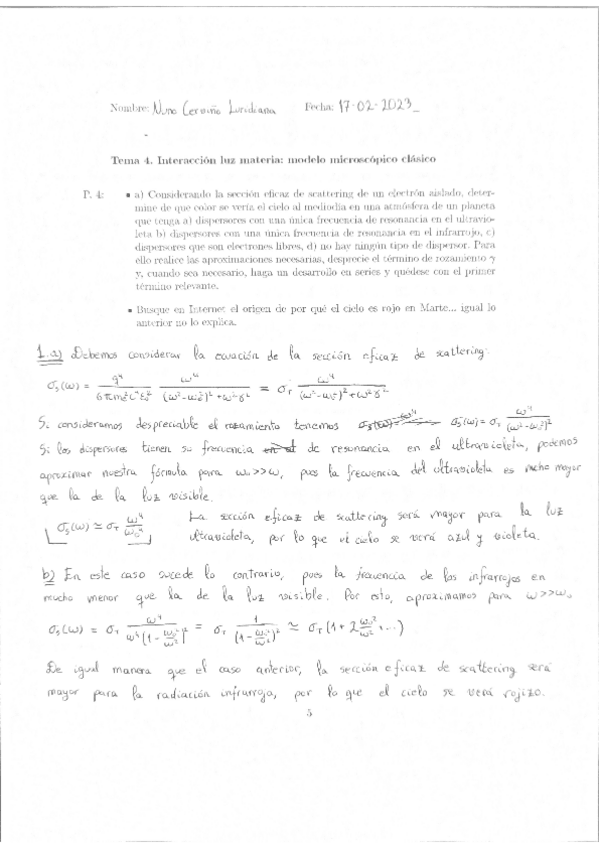 Nombre: Nuno Cerviño Luridiana Fecha: 17-02-2023_
Tema 4. Interacción luz materia: modelo microscópico clásico
P. 4: • a) Considerando la sección eficaz de scattering de un electrón aislado, deter-
mine de que color se vería el cielo al mediodía en una atmósfera de un planeta
que tenga a) dispersores con una única frecuencia de resonancia en el ultravio-
leta b) dispersores con una única frecuencia de resonancia en el infrarrojo, c)
dispersores que son electrones libres, d) no hay ningún tipo de dispersor. Para
ello realice las aproximaciones necesarias, desprecie el término de rozamiento γ
y, cuando sea necesario, haga un desarrollo en series y quédese con el primer
término relevante.
• Busque en Internet el origen de por qué el cielo es rojo en Marte... igual lo
anterior no lo explica.
1.a) Debemos considerar la ecuación de la sección eficaz de scattering:
σs(ω) = q⁴/(6πm²c⁴ε₀²) ω⁴/((ω²-ω₀²)²+ω²γ²) = σT ω⁴/((ω²-ω₀²)²+ω²γ²)
Si consideramos despreciable el rozamiento tenemos σs(ω) = σT ω⁴/(ω²-ω₀²)²
Si los dispersores tienen su frecuencia de resonancia en el ultravioleta, podemos
aproximar nuestra fórmula para ω₀>>ω, pues la frecuencia del ultravioleta es mucho mayor
que la de la luz visible.
σs(ω) ≃ σT ω⁴/ω₀⁴ La sección eficaz de scattering será mayor para la luz
ultravioleta, por lo que el cielo se verá azul y violeta.
b) En este caso sucede lo contrario, pues la frecuencia de los infrarrojos en
mucho menor que la de la luz visible. Por esto, aproximamos para ω>>ω₀
σs(ω) = σT ω⁴/(ω⁴(1-ω₀²/ω²)²) = σT 1/(1-ω₀²/ω²)² ≃ σT(1+2ω₀²/ω²...)
De igual manera que el caso anterior, la sección eficaz de scattering será
mayor para la radiación infrarroja, por lo que el cielo se verá rojizo.
5